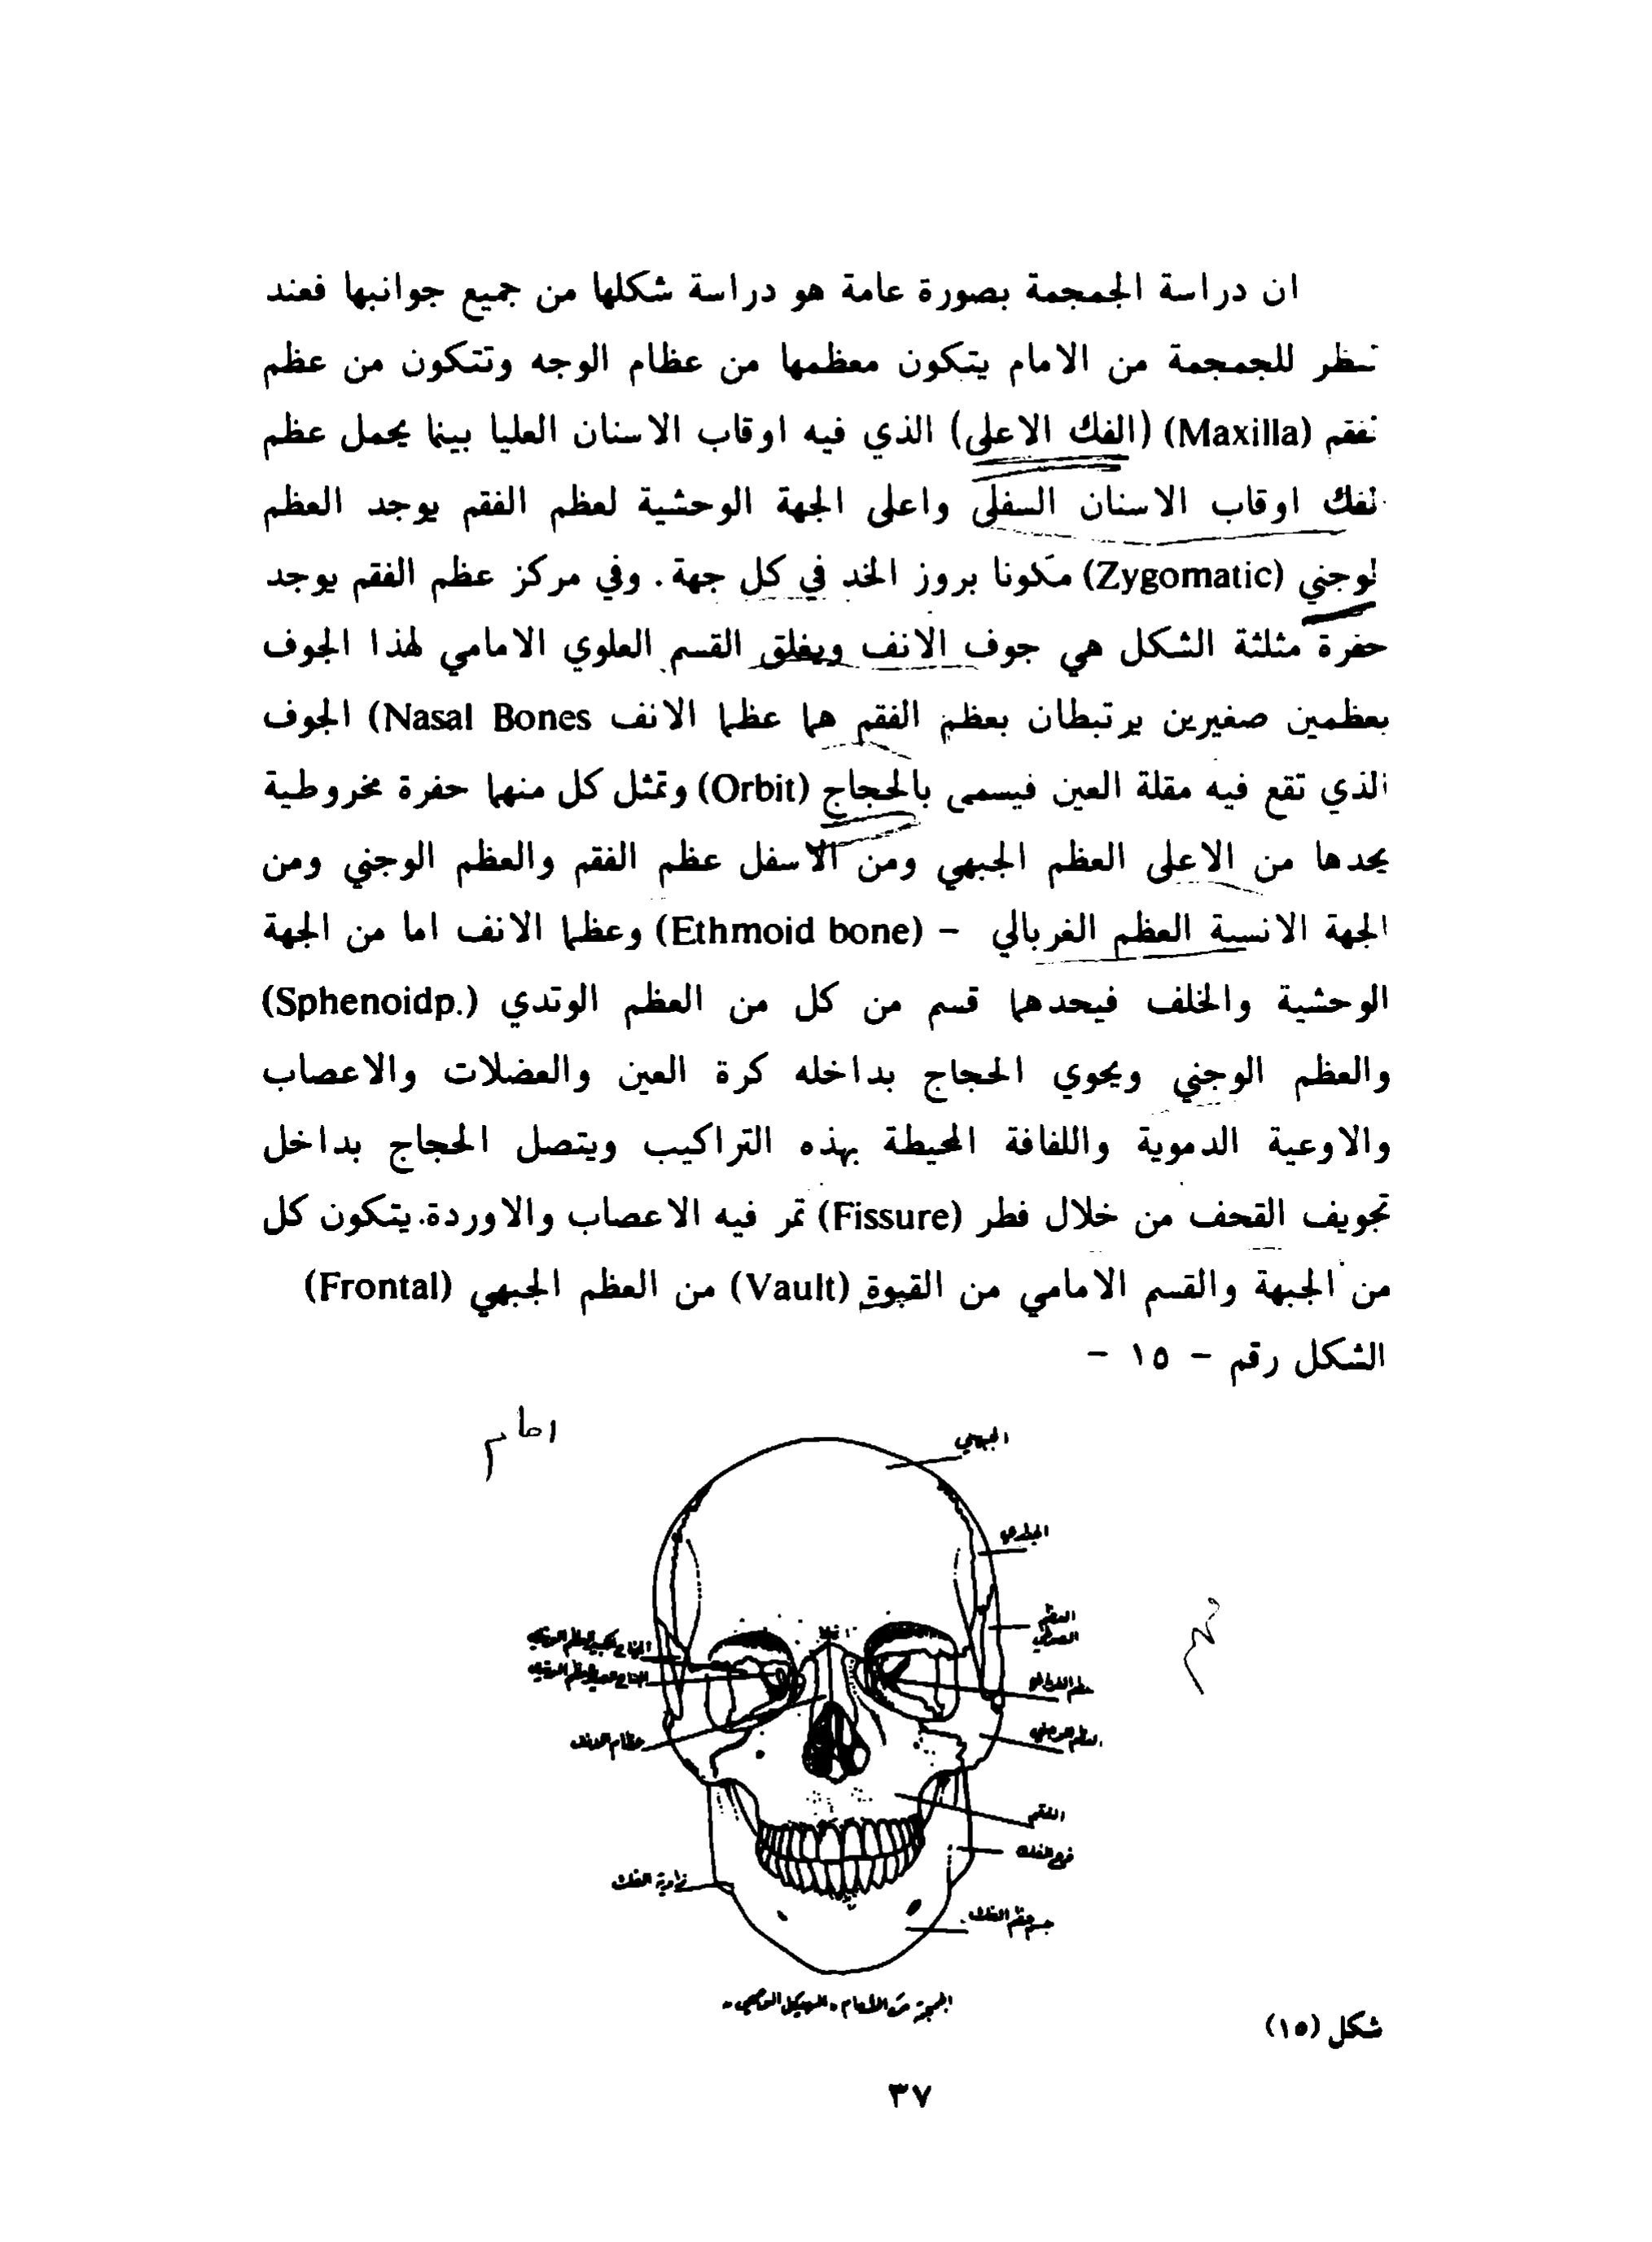 ان دراسة الجمجمة بصورة عامة هو دراسة شكلها من جميع جوانبها فعند
للجمجمة من الامام يتكون معظمها من عظام الوجه وتتكون من عظم
لفقم (Maxilla) (الفك الاعلى) الذي فيه اوقاب الاسنان العليا بينما يحمل عظم
لفك اوقاب الاسنان السفلى واعلى الجهة الوحشية لعظم الفقم يوجد العظم
لوجني (Zygomatic) مكونا بروز الخد في كل جهة. وفي مركز عظم الفقم يوجد
حفرة مثلثة الشكل هي جوف الانف ويغلق القسم العلوي الامامي لهذا الجوف
بعظمين صغيرين يرتبطان بعظم الفقم هما عظما الانف Nasal Bones) الجوف
الذي تقع فيه مقلة العين فيسمى بالحجاج (Orbit) وتمثل كل منهما حفرة مخروطية
يحدها من الاعلى العظم الجبهي ومن الاسفل عظم الفقم والعظم الوجني ومن
الجهة الانسية العظم الغربالي - (Ethmoid bone) وعظما الانف اما من الجهة
الوحشية والخلف فيحدهما قسم من كل من العظم الوتدي (Sphenoidp.)
والعظم الوجني ويحوي الحجاج بداخله كرة العين والعضلات والاعصاب
والاوعية الدموية واللفافة المحيطة بهذه التراكيب ويتصل الحجاج بداخل
تجويف القحف من خلال فطر (Fissure) تمر فيه الاعصاب والاوردة.يتكون كل
من الجبهة والقسم الامامي من القبوة (Vault) من العظم الجبهي (Frontal)
الشكل رقم - ١٥ -
امام
الجبهي
الجداري
العظم
الصدغي
مهم
عظام الانف
العظم الوجني
الفقم
فرع الفك
زاوية الفك
جسم عظم الفك
الجمجمة من الأمام - الهيكل الوجهي -
شكل (١٥)
٣٧